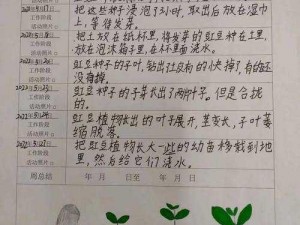 把这些种子浸泡了3小时,取出后放在湿巾
上,等待发芽。
工作阶段
活动照片
把土放在纸杯里,将豇豆种在土里,
放在泡沫箱子里,在杯里面浇水。
工作阶段
活动照片
豇豆种子的叶子,钻出
的快掉了,有的还
没有
工作阶段
活动照片
豇豆种子的子叶长出了两片子。但是合拢
的。
工作阶段
活动照片
豇豆植物长出的叶子展开,茎变长,子叶萎
缩脱落。
工作阶段
活动照片
把豇豆植物长大一些的幼苗移栽到地
里,然后给它们浇水。
周总结
年 月 日至 年 月 日